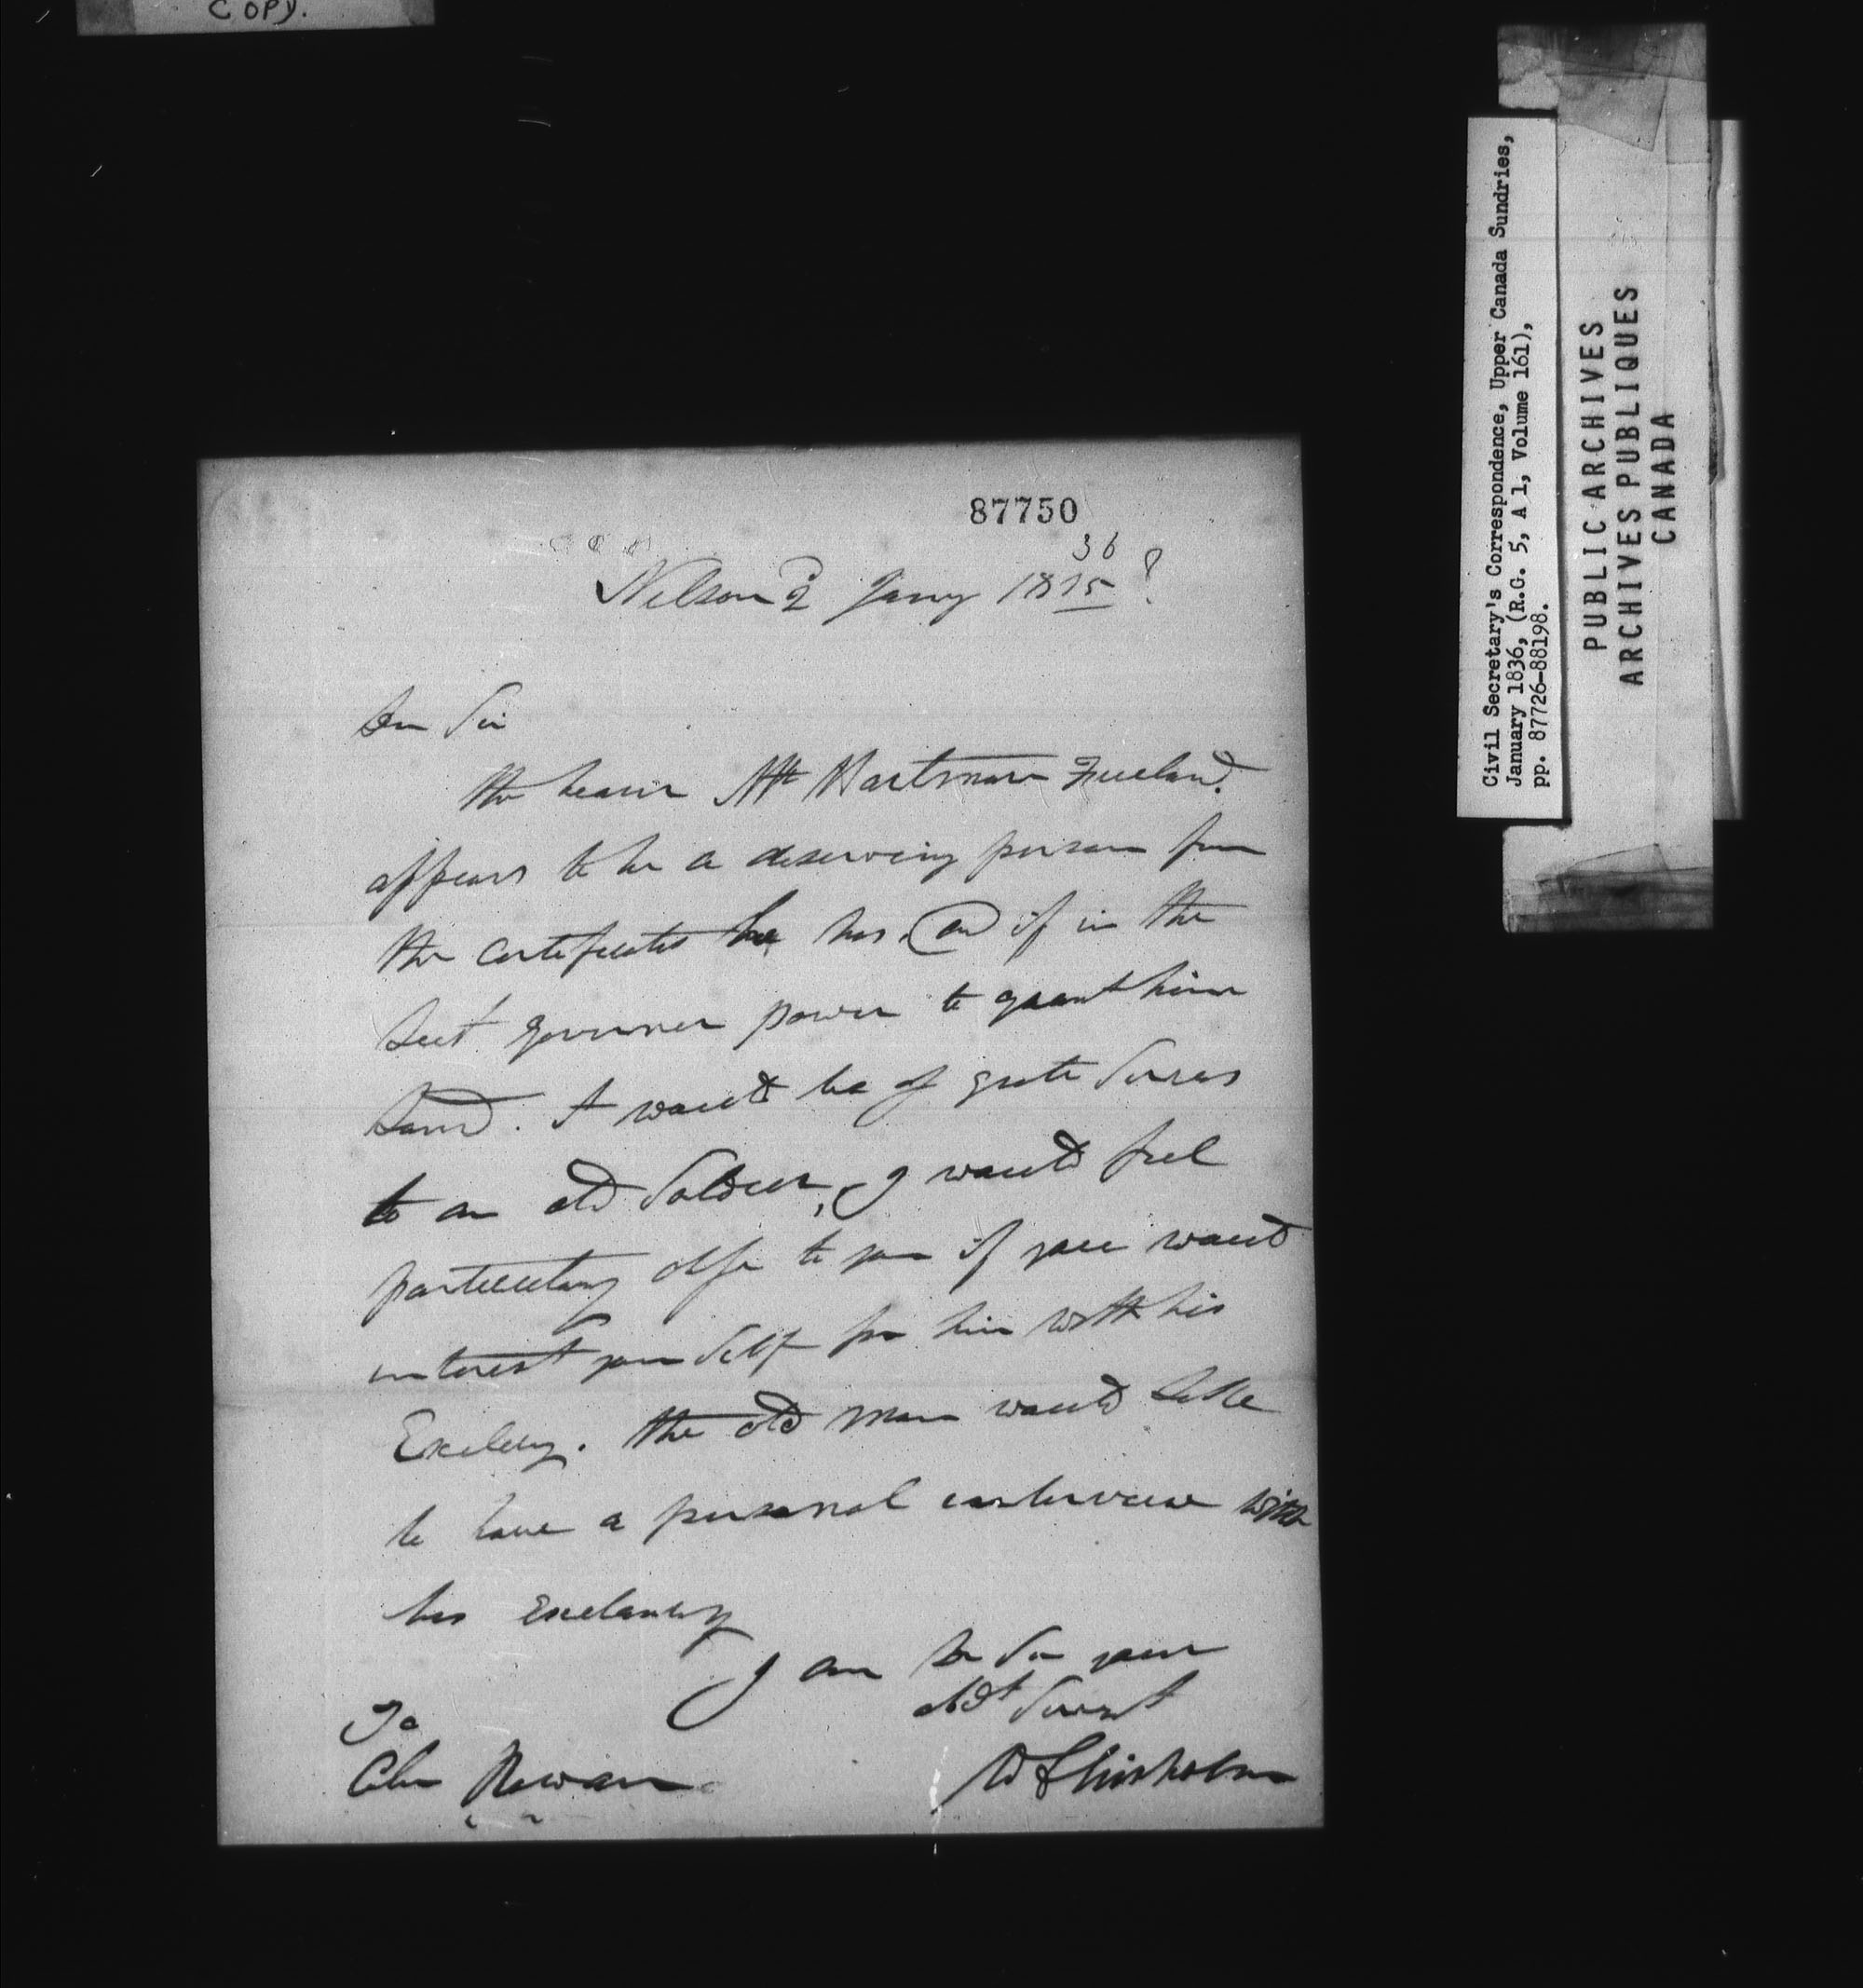 COPY.
87750
36
Nelson 2 Jany 1835 ?
Dear Sir
the bearer Mr Hartman Freeland.
appears to be a deserving person from
the certificates he has. and if in the
Leut governer power to grant him
Land. it would be of grate Serves
to an old Soldier, I would feel
particulary oblg to you if you would
interest your Self for him with his
Excelency. the old man would like
to have a personal interview with
his Exelancy
I am Dr Sir your
obdt Servant
To
Coln Rowan
W Chisholm
Civil Secretary's Correspondence, Upper Canada Sundries,
January 1836, (R.G. 5, A 1, Volume 161),
pp. 87726-88198.
PUBLIC ARCHIVES
ARCHIVES PUBLIQUES
CANADA